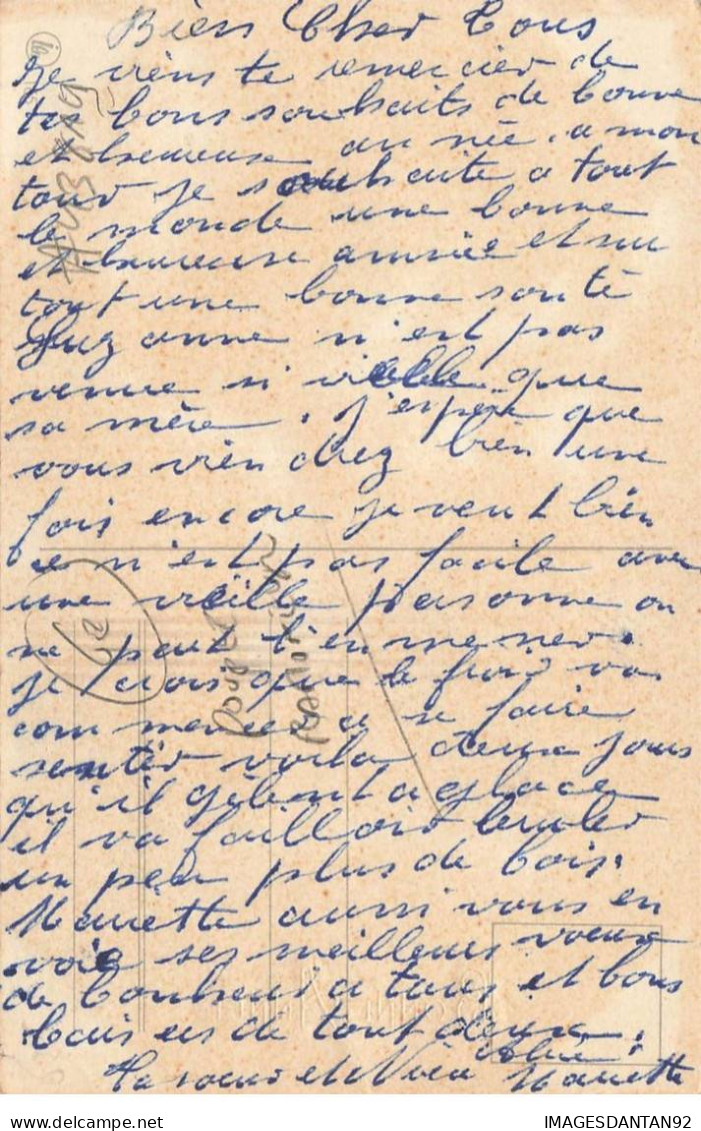 Bien Cher Tous
Je viens te remercier de
tes bons souhaits de bonne
et heureuse an née. a mon
tour je souhaite a tout
le monde une bonne
et heureuse année et su
tout une bonne sonté
Suzanne n'est pas
venue ni vielle que
sa mère. J'espere que
vous vien drez bien une
fois encore je veut bien
ce n'est pas facile avec
une vieille personne on
ne peut l'en mener.
je crois que le froid va
com mencer a se faire
sentir voila deux jours
qu'il gêlent a glace
il va failloir bruler
un peu plus de bois.
Mariette aussi vous en
voie ses meilleurs voeux
de bonheur a tous et bons
baisers de tout deux.
Ta soeur et Niece Mariette
IMAGESDANTAN92